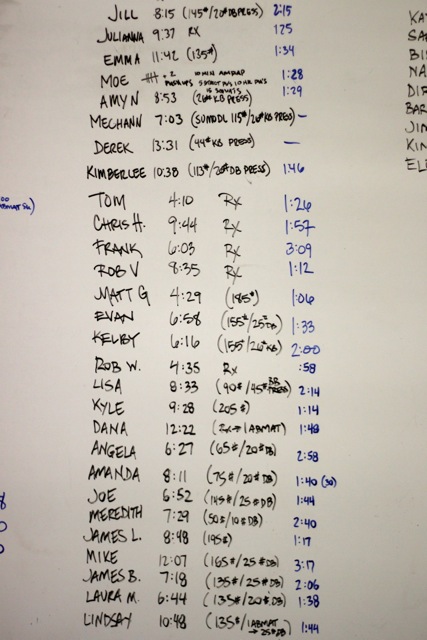 JILL 8:15 (145#/20#DB PRESS) 2:15
JULIANNA 9:37 RX 125
EMMA 11:42 (135#) 1:34
MOE 10 MIN AMRAP 1:28
AMY N 8:53 (26# KB PRESS) 1:29
MECHANN 7:03 (SUMODL 115#/26#KB PRESS) —
DEREK 13:31 (44# KB PRESS) —
KIMBERLEE 10:38 (113#/20#DB PRESS) 1:46
TOM 4:10 RX 1:26
CHRIS H. 9:44 RX 1:57
FRANK 6:03 RX 3:09
ROB V 8:35 RX 1:12
MATT G 4:29 (185#) 1:06
EVAN 6:58 (155#/25#DB) 1:33
KELBY 6:16 (155#/26#KB) 2:00
ROB W. 4:35 RX :58
LISA 8:33 (90#/45#BB PRESS) 2:14
KYLE 9:28 (205#) 1:14
DANA 12:22 (RX + 1 ABMAT) 1:48
ANGELA 6:27 (65#/20#DB) 2:58
AMANDA 8:11 (75#/20#DB) 1:40 (30)
JOE 6:52 (145#/25#DB) 1:44
MEREDITH 7:29 (50#/10#DB) 2:40
JAMES L. 8:48 (195#) 1:17
MIKE 12:07 (165#/25#DB) 3:17
JAMES B. 7:18 (135#/25#DB) 2:06
LAURA M. 6:44 (135#/20#DB) 1:38
LINDSAY 10:48 (135#/1 ABMAT → 25#DB) 1:44